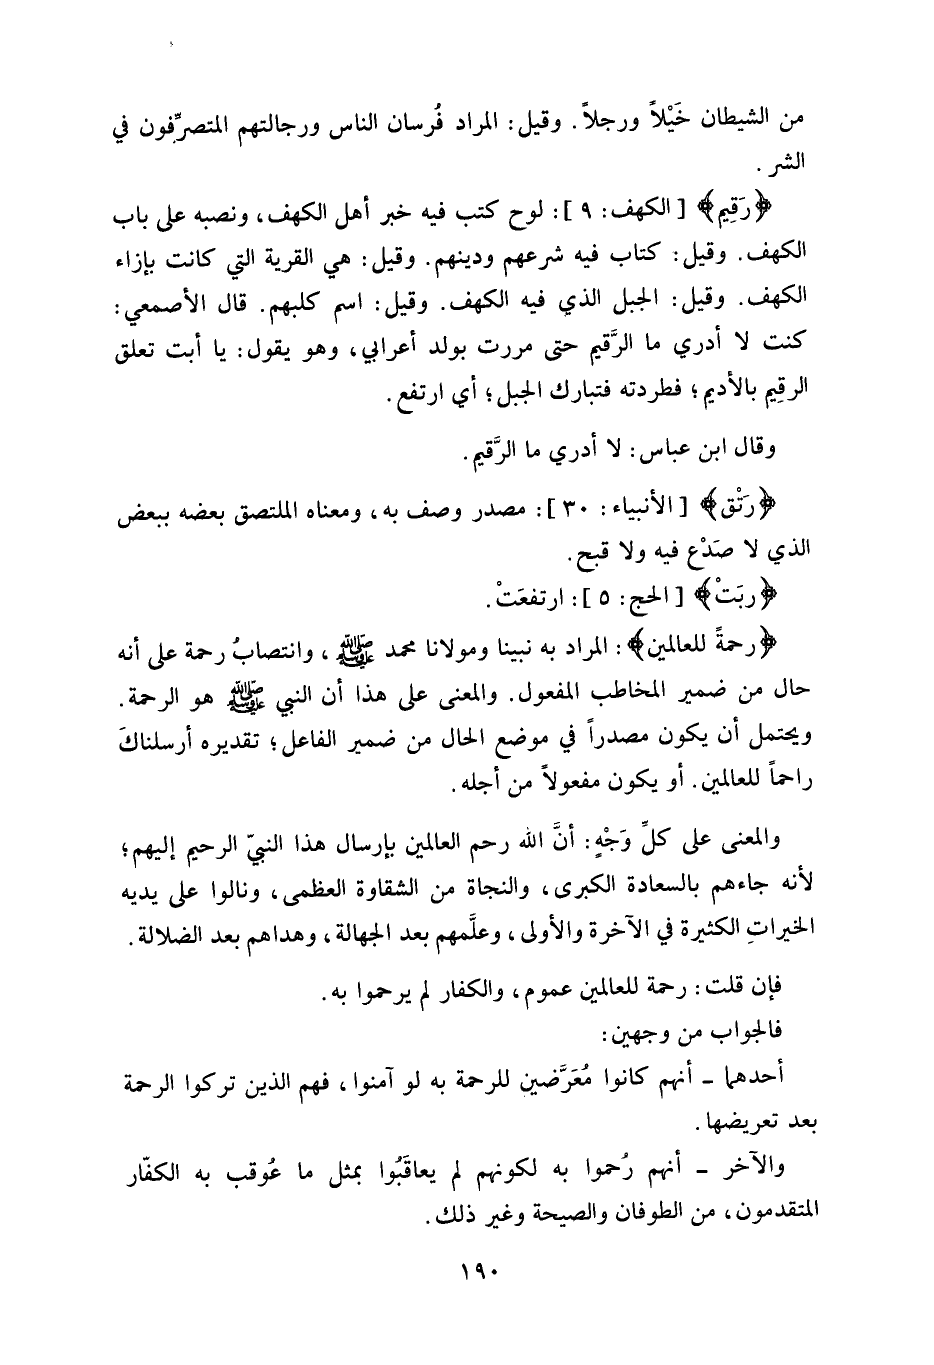 من الشيطان خَيْلاً ورجلاً. وقيل: المراد فُرسان الناس ورجالتهم المتصرِّفون في
الشر.
﴿رَقِيم﴾ [الكهف: ٩]: لوح كتب فيه خبر أهل الكهف، ونصبه على باب
الكهف. وقيل: كتاب فيه شرعهم ودينهم. وقيل: هي القرية التي كانت بإزاء
الكهف. وقيل: الجبل الذي فيه الكهف. وقيل: اسم كلبهم. قال الأصمعي:
كنت لا أدري ما الرَّقيم حتى مررت بولد أعرابي، وهو يقول: يا أبت تعلق
الرقِيم بالأديم؛ فطردته فتبارك الجبل؛ أي ارتفع.
وقال ابن عباس: لا أدري ما الرَّقيم.
﴿رَتْق﴾ [الأنبياء: ٣٠]: مصدر وصف به، ومعناه الملتصق بعضه ببعض
الذي لا صَدْع فيه ولا قبح.
﴿ربَتْ﴾ [الحج: ٥]: ارتفعَتْ.
﴿رحمةً للعالمين﴾: المراد به نبينا ومولانا محمد ﷺ، وانتصابُ رحمة على أنه
حال من ضمير المخاطب المفعول. والمعنى على هذا أن النبي ﷺ هو الرحمة.
ويحتمل أن يكون مصدراً في موضع الحال من ضمير الفاعل؛ تقديره أرسلناكَ
راحماً للعالمين. أو يكون مفعولاً من أجله.
والمعنى على كلِّ وَجْهٍ: أنَّ الله رحم العالمين بإرسال هذا النبيّ الرحيم إليهم؛
لأنه جاءهم بالسعادة الكبرى، والنجاة من الشقاوة العظمى، ونالوا على يديه
الخيراتِ الكثيرة في الآخرة والأولى، وعلَّمهم بعد الجهالة، وهداهم بعد الضلالة.
فإن قلت: رحمة للعالمين عموم، والكفار لم يرحموا به.
فالجواب من وجهين:
أحدهما - أنهم كانوا مُعَرَّضين للرحمة به لو آمنوا، فهم الذين تركوا الرحمة
بعد تعريضها.
والآخر - أنهم رُحموا به لكونهم لم يعاقَبُوا بمثل ما عُوقب به الكفّار
المتقدمون، من الطوفان والصيحة وغير ذلك.
١٩٠